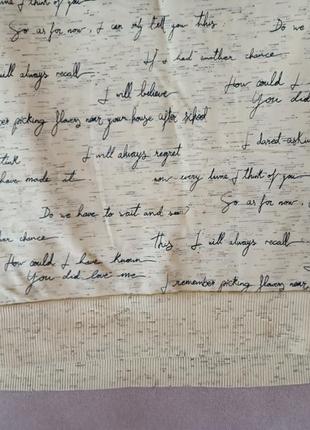 time I think of you
So as for now, I can my tell you this. Do we
If I had another chance
will always recall How could I
I will believe You did
picking flowers near your house after school
I dared
I will always regret
have made it now every time I think of you
So as for now,
Do we have to wait and see?
chance this I will always recall
How could I have known
You did love me
I remember picking flowers near